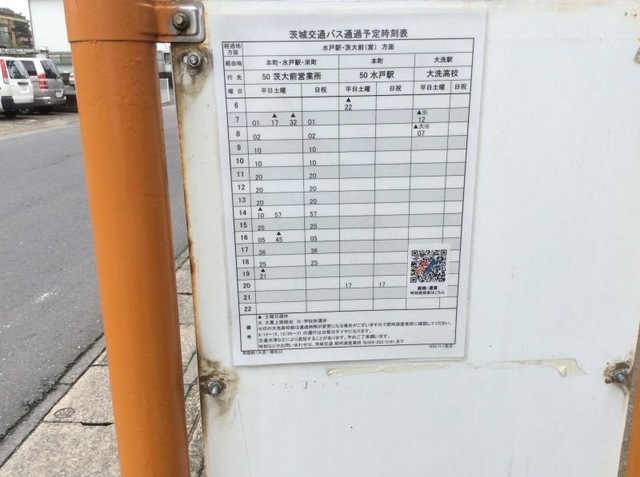 茨城交通バス通過予定時刻表
経過地方面 水戸駅・茨大前(営) 方面
経由地 本町・水戸駅・栄町 本町 大洗駅
行先 50 茨大前営業所 50 水戸駅 大洗高校
曜日 平日土曜 日祝 平日土曜 日祝 平日土曜 日祝
6 ▲22
7 01 ▲17 ▲32 01 ▲※12
8 02 02 ▲大※07
9 10 10
10 10 10
11 20 20
12 20 20
13 20 20
14 ▲10 57 57
15 25 25
16 05 ▲45 05
17 36 36
18 25 25
19 ▲21
20 17 17
21
22
備考
▲:土曜日運休